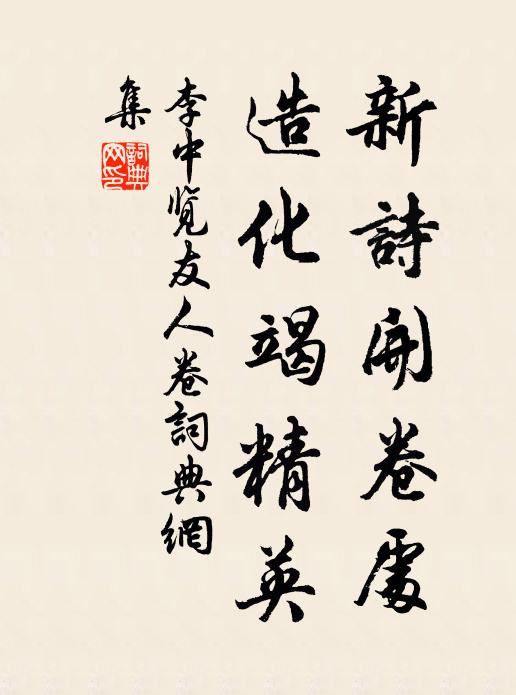 新詩開卷處
造化竭精英
李中覽友人卷詞典網
集
詞典
网印